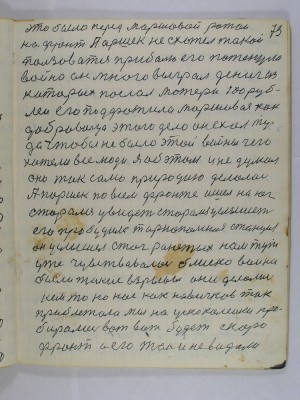 это было перед маршовой ротой 75
на фронт Паршек не схотел такой
пользоватся прибаль его потенцула
война он много выграл денег из
которых послал матери 100 руб-
лей его поддружила маршевая как
добровольца этого дело он ехал ту-
да чтобы не было этой войны чего
хотели все люди я об этом и не думал
оно так само природию делалос
А паршек по всем фронте ишел на юг
сторам увидет сторам услышет
его пробудило тарнопольская станция
он услышел стог раненых нам тут
уже чувствавалос близко война
были такие взрывы они делали
нам то но нас как новичков так
приблетала мы на узкоколейки про-
бирали вот вот будет скоро
фронт а его там и не видали